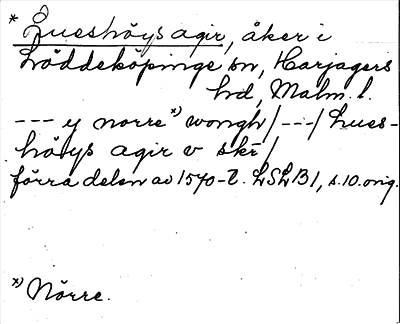 * Lueshöys agir, åker i
Löddeköpinge sn, Harjagers
hd, Malm. l.
--- y norre *) wongh /---/ Lues-
höys agir v skr /
förra delen av 1570-t. LSLB1, s. 10. orig.
*) Nörre.